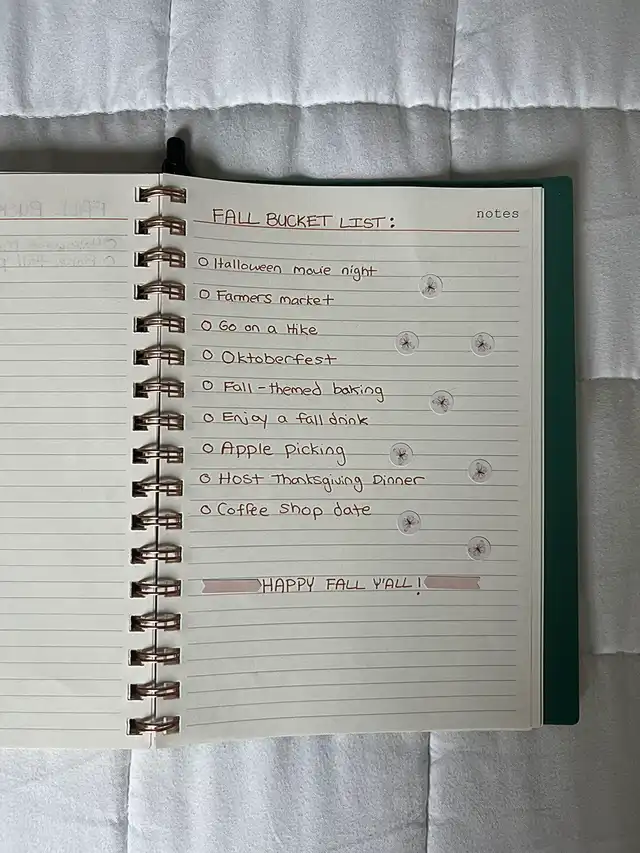 FALL BUCKET LIST:
notes
O Halloween movie night
O Farmers market
O Go on a Hike
O Oktoberfest
O Fall-themed baking
O Enjoy a fall drink
O Apple picking
O Host Thanksgiving Dinner
O Coffee Shop date
HAPPY FALL Y'ALL!